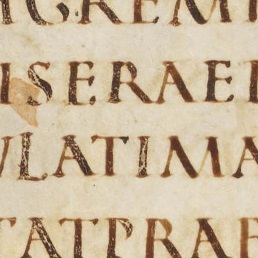 IGREMI
ISERAEL
VLATIMA
TATPRAE